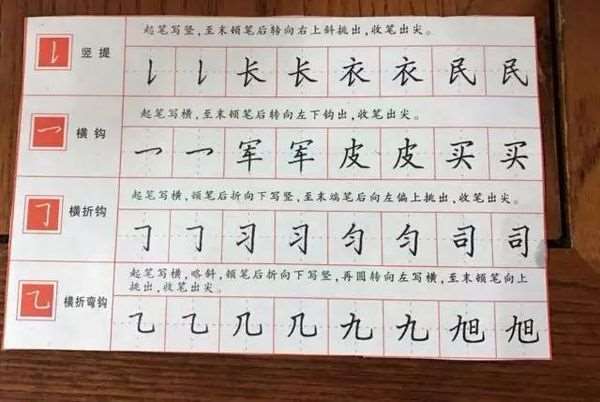 起笔写竖,至末顿笔后转向右上斜挑出,收笔出尖。
竖提
长 长 衣 衣 民 民
起笔写横,至末顿笔后转向左下钩出,收笔出尖。
横钩
乛 乛 军 军 皮 皮 买 买
起笔写横,顿笔后折向下写竖,至末端笔后向左偏上挑出,收笔出尖。
横折钩
㇆ ㇆ 习 习 匀 匀 司 司
起笔写横,略斜,顿笔后折向下写竖,再圆转向左写横,至末顿笔向上
挑出,收笔出尖。
横折弯钩
乙 乙 几 几 九 九 旭 旭